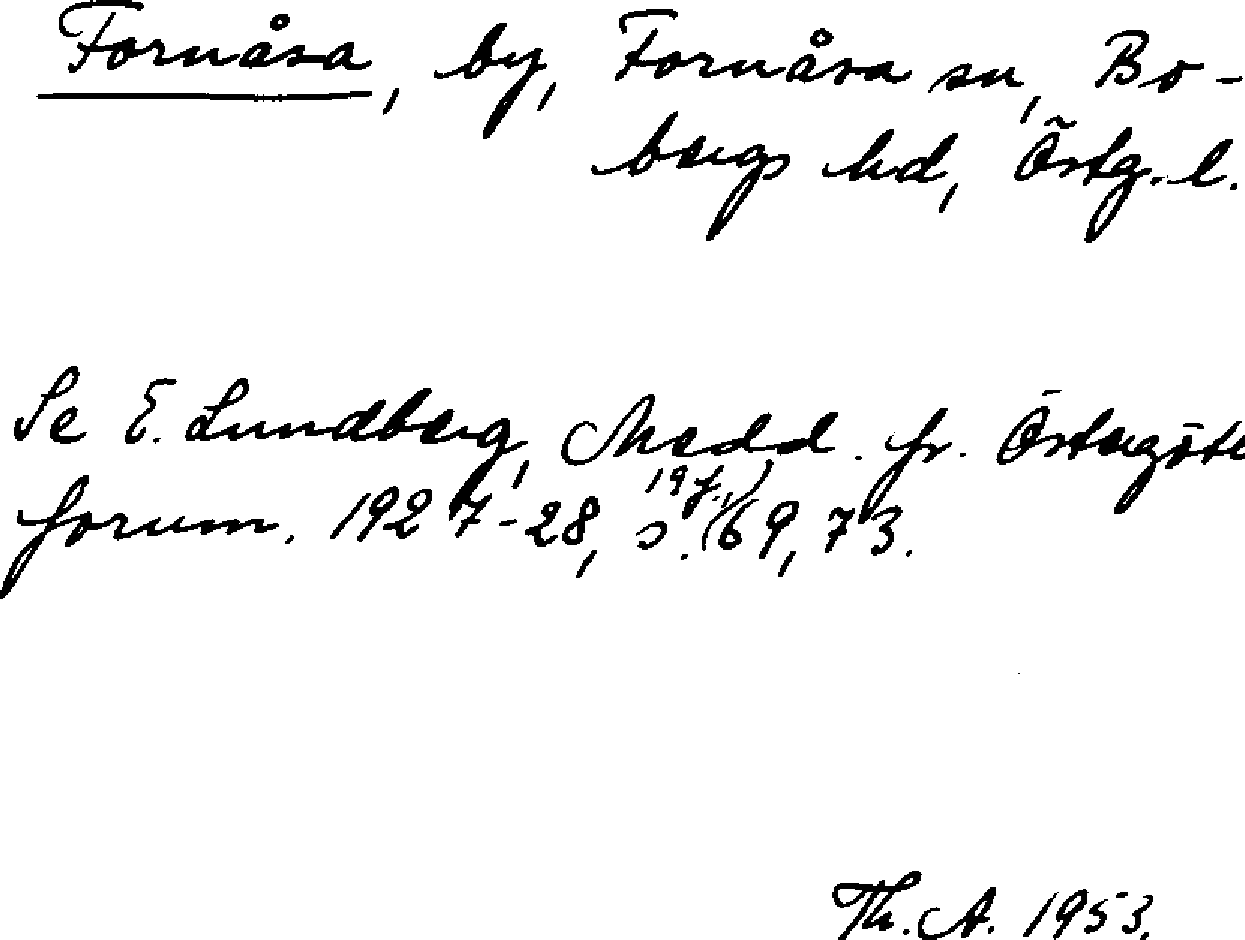 Fornåsa, by, Fornåsa sn, Bo-
bergs hd, Östg. l.
Se E. Lundberg, Medd. fr. Östergötl
fornm. 1927-28, s. 19 f., 69, 73.
Th. A. 1953.